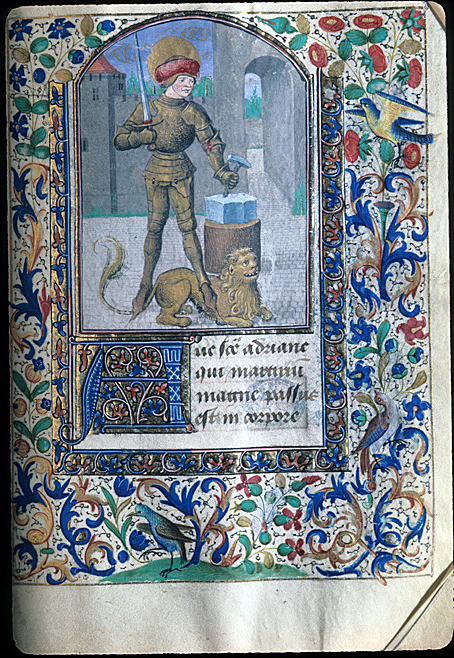 Aue sc̄e adriane
qui martiriū
magne passus
est in corpore